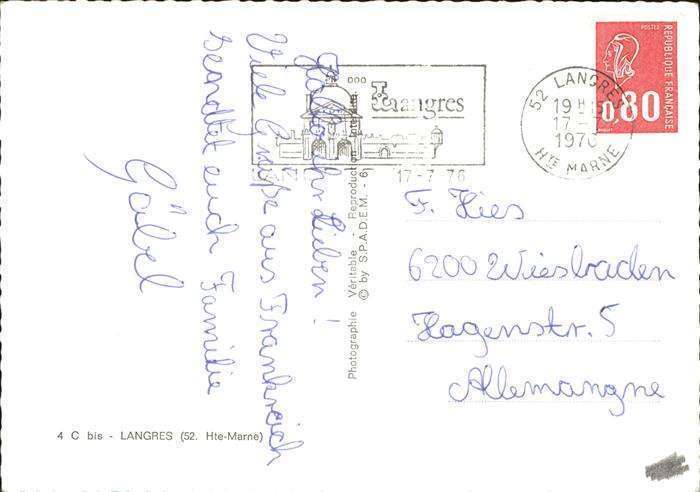 Hallo ihr Lieben!
Viele Grüße aus Frankreich
sendtet euch Familie
Göbel
4 C bis - LANGRES (52. Hte-Marne)
Photographie Véritable - Reproduction interdite
© by S.P.A.D.E.M. - 6
langres
17-7 76
52 LANGRES
19 H
17 -
1976
HTE MARNE
POSTES
REPUBLIQUE FRANÇAISE
0,80
F. Hies
6200 Wiesbaden
Hagenstr. 5
Allemangne